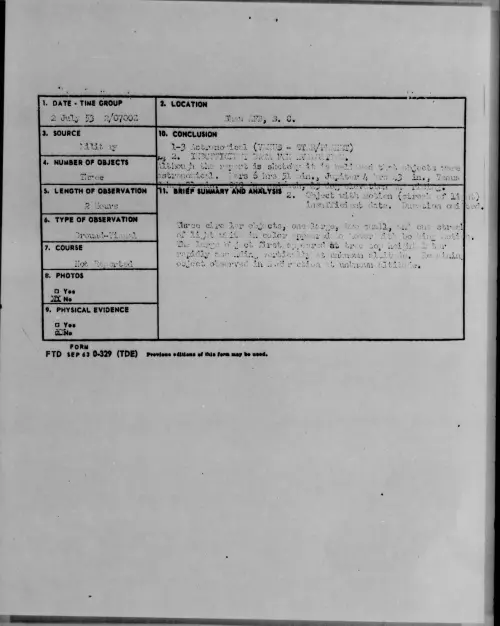 1. DATE - TIME GROUP
2 July 53 2/0700Z
2. LOCATION
Shaw AFB, S. C.
3. SOURCE
Military
10. CONCLUSION
1-3 Astronomical (VENUS - STAR/PLANET)
2. INSUFFICIENT DATA FOR
Although the report is sketchy it is believed that objects were
astronomical. Mars 5 hrs 51 min., Jupiter 4 hrs 43 min., Venus
4. NUMBER OF OBJECTS
Three
5. LENGTH OF OBSERVATION
2 Hours
11. BRIEF SUMMARY AND ANALYSIS
2. Object with motion (streak of light)
Insufficient data. Duration omitted.
6. TYPE OF OBSERVATION
Ground-Visual
Three circular objects, one large, two small, and one streak
of light white in color appeared
The large object first appeared at tree top height
rapidly ascending vertically at unknown altitude. Remaining
object observed in at unknown altitude.
7. COURSE
Not Reported
8. PHOTOS
□ Yes
XX No
9. PHYSICAL EVIDENCE
□ Yes
No
FORM
FTD SEP 63 0-329 (TDE) Previous editions of this form may be used.